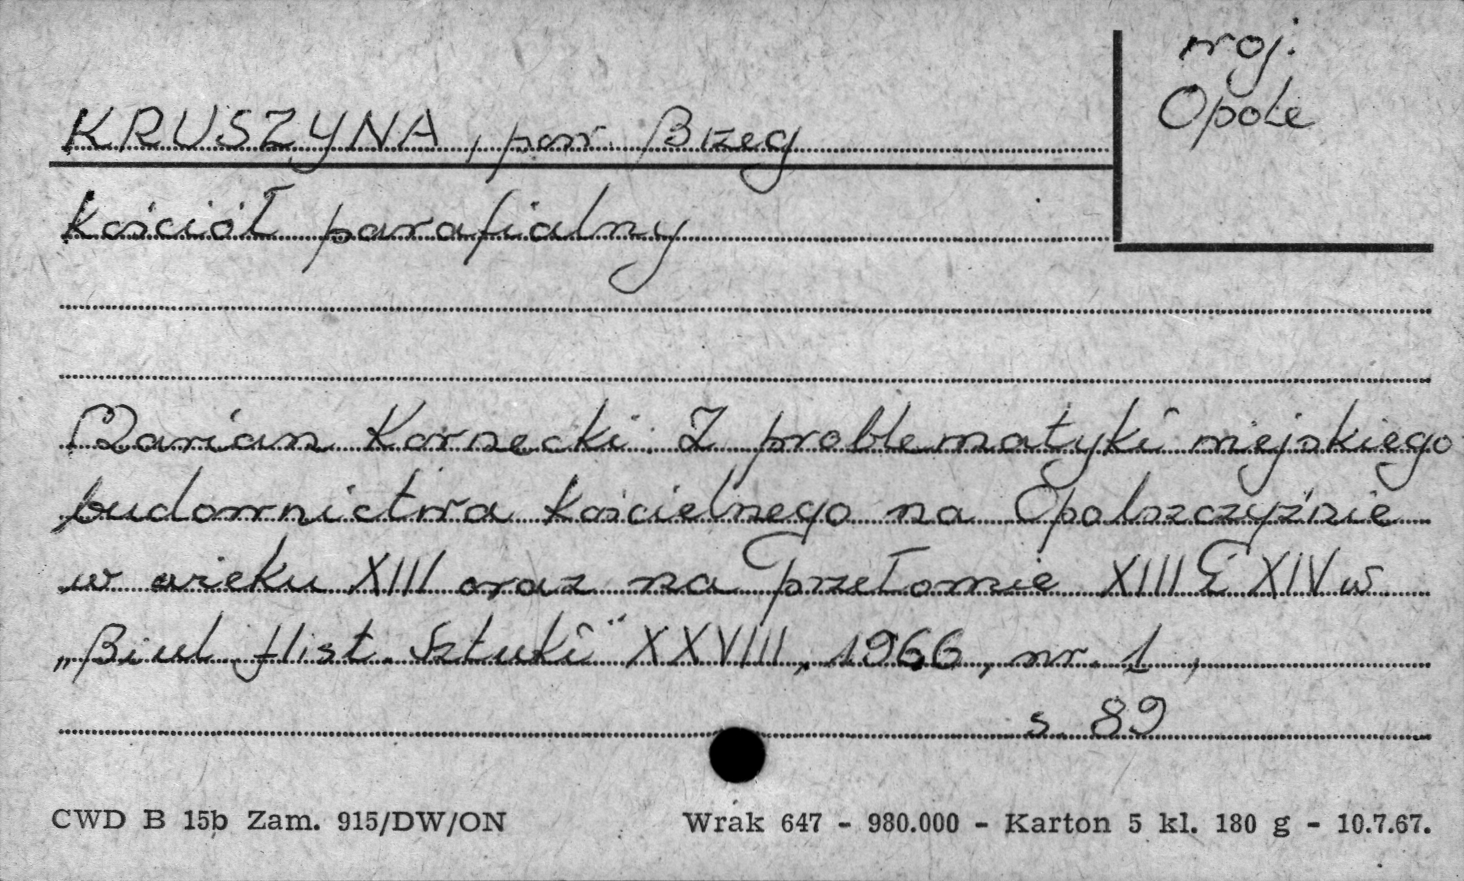 woj.
Opole
KRUSZYNA, pow. Brzeg
Kościół parafialny
Marian Kornecki: Z problematyki wiejskiego
budownictwa kościelnego na Opolszczyźnie
w wieku XIII oraz na przełomie XIII i XIV w
„Biul. Hist. Sztuki" XXVIII, 1966, nr. 1,
s. 89
CWD B 15b Zam. 915/DW/ON Wrak 647 - 980.000 - Karton 5 kl. 180 g - 10.7.67.